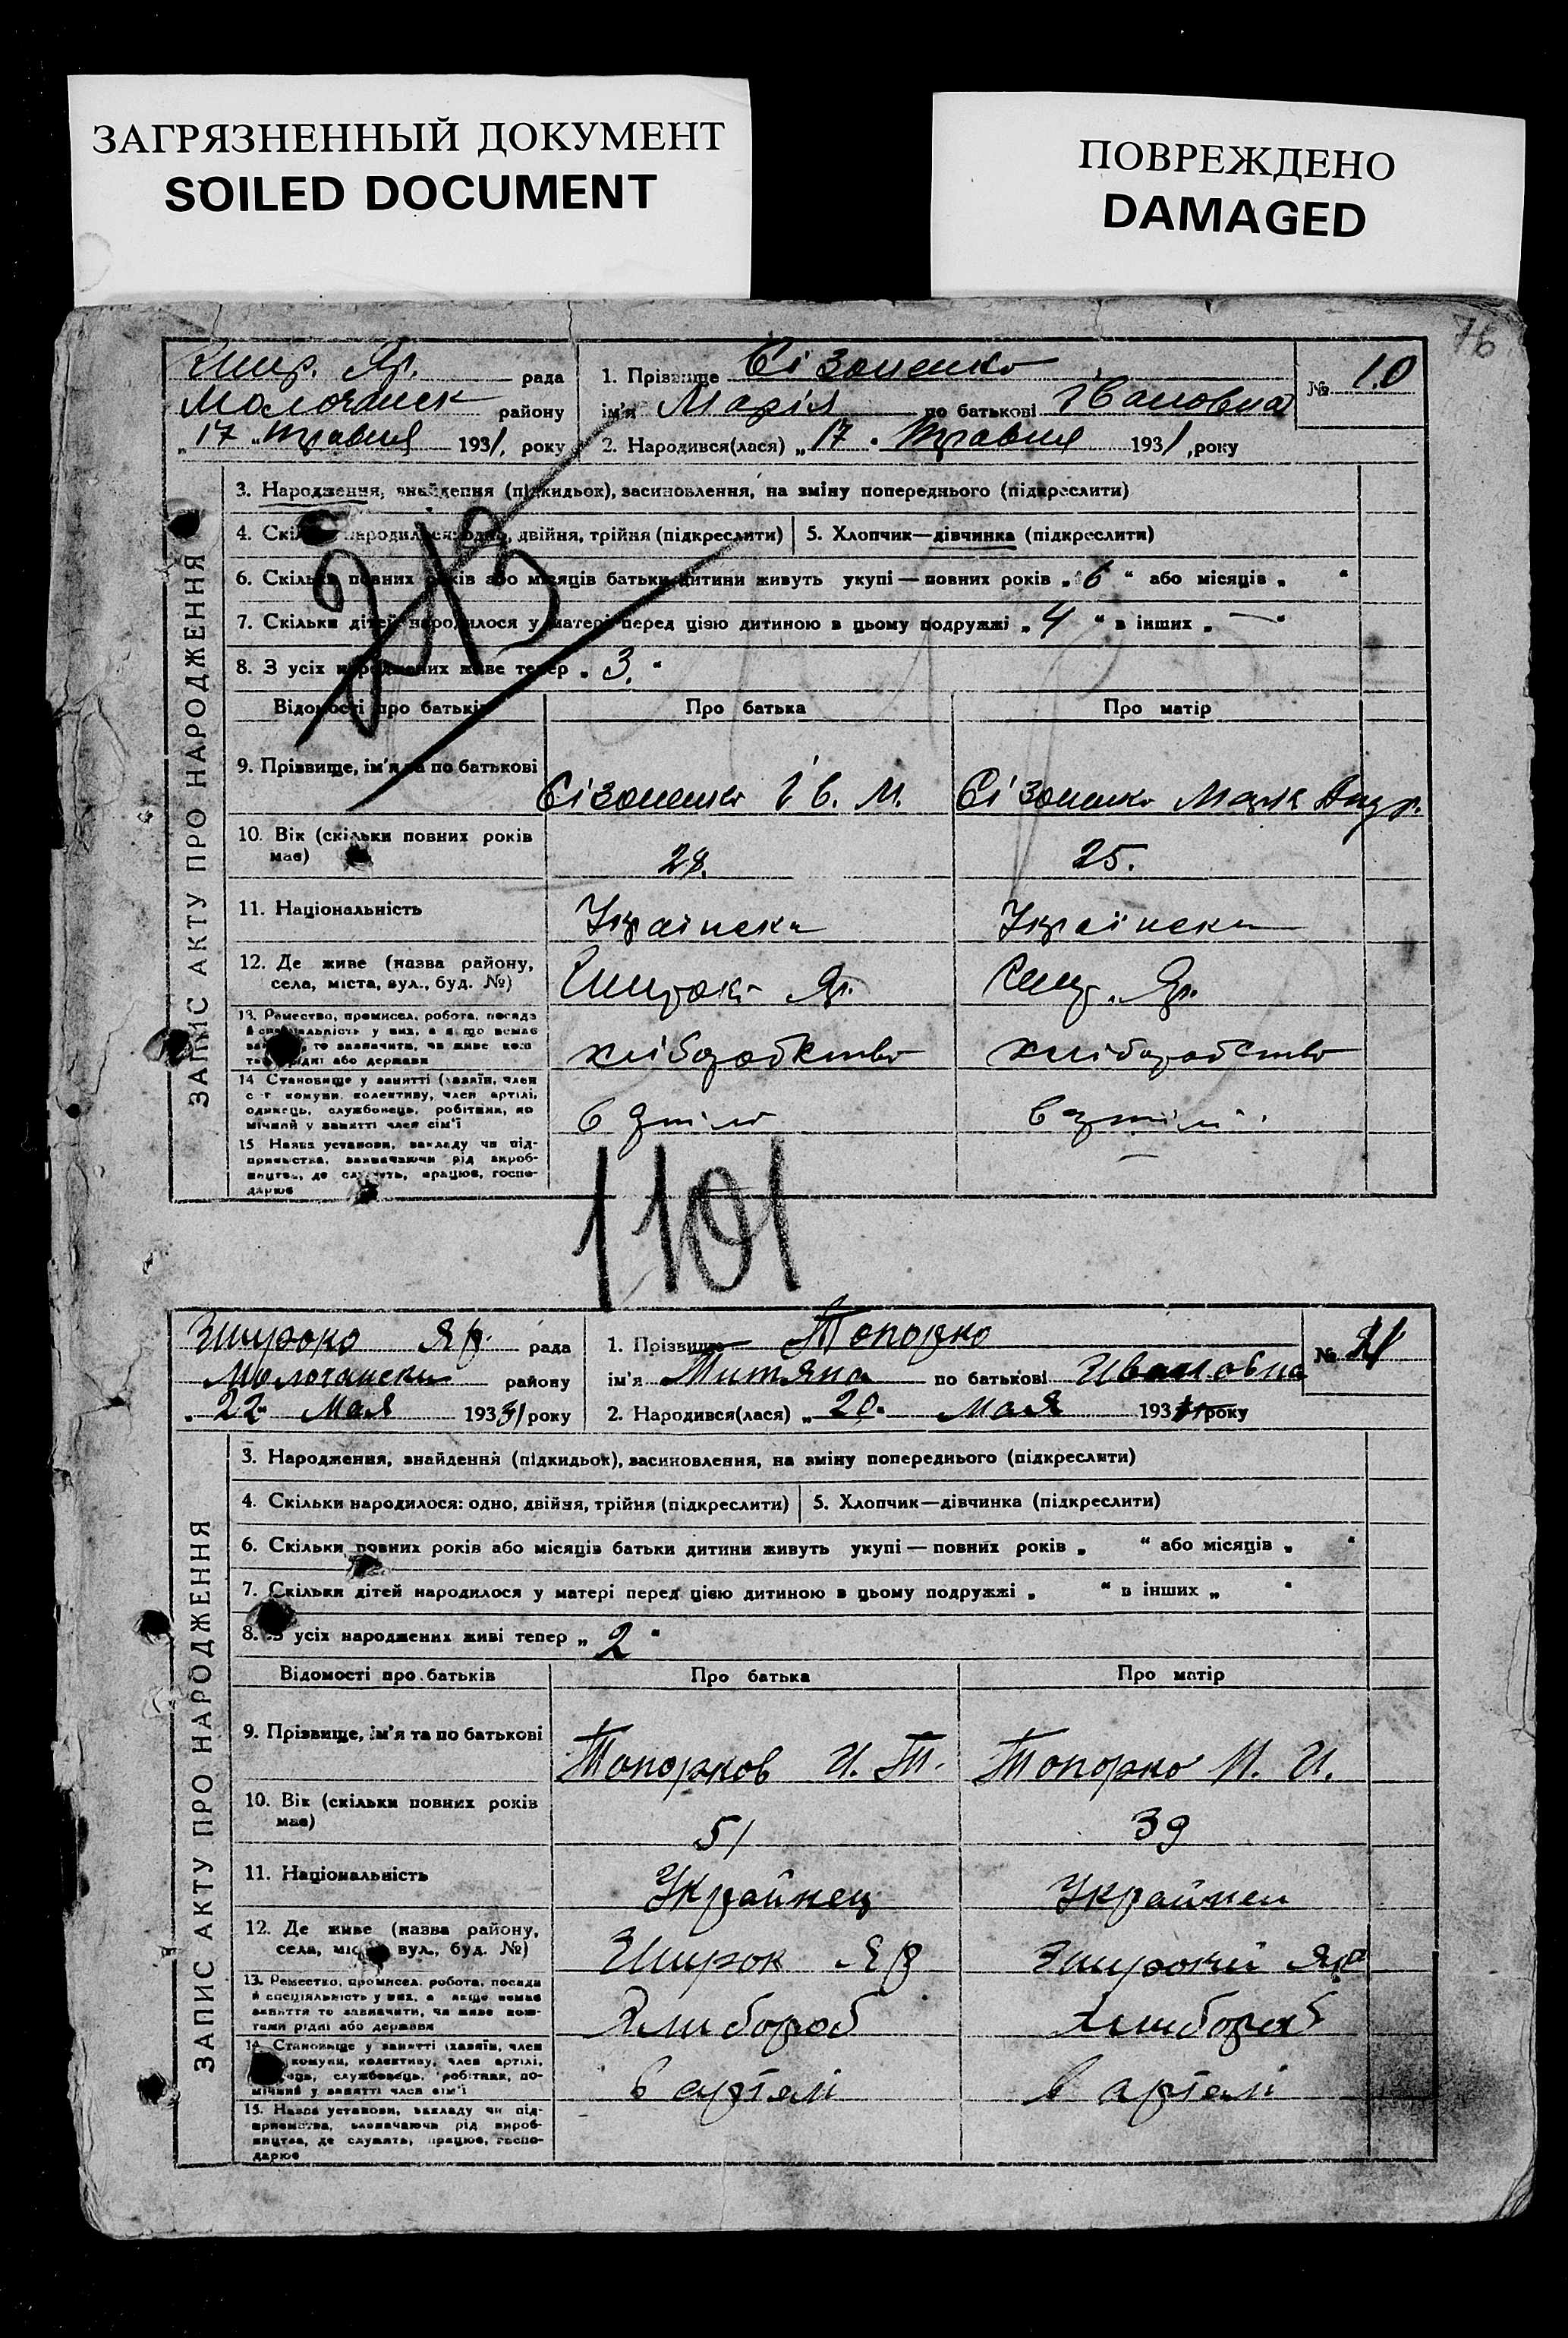 ЗАГРЯЗНЕННЫЙ ДОКУМЕНТ
SOILED DOCUMENT
ПОВРЕЖДЕНО
DAMAGED
76
Шир. Яр. рада
Молочанск району
„17„ травня 1931, року
1. Прізвище Сізоненко
ім'я Марія по батькові Івановна
2. Народився(лася) „17. травня 1931, року
№ 10
ЗАПИС АКТУ ПРО НАРОДЖЕННЯ
3. Народження, знайдення (підкидьок), засиновлення, на зміну попереднього (підкреслити)
4. Скільки народилося: одно, двійня, трійня (підкреслити) 5. Хлопчик—дівчинка (підкреслити)
6. Скільки повних років або місяців батьки дитини живуть укупі — повних років „6“ або місяців „ “
7. Скільки дітей народилося у матері перед цією дитиною в цьому подружжі „4“ в інших „—“
8. З усіх народжених живе тепер „3.“
Відомості про батьків Про батька Про матір
9. Прізвище, ім'я та по батькові Сізоненко Ів. М. Сізоненко Мария Андр.
10. Вік (скільки повних років має) 28. 25.
11. Національність Українска Українска
12. Де живе (назва району, села, міста, вул., буд. №) Широк. Яр. Шир. Яр.
13. Ремество, промисел, робота, посада й спеціяльність у них, а якщо немає заняття то зазначити, чи живе коштами рідні або держави хліборобство хліборобство
14 Становище у занятті (хазяїн, член с.-г. комуни, колективу, член артілі, одинець, службовець, робітник, помічний у занятті член сім'ї
15 Назва установи, закладу чи підприємства, зазначаючи рід виробництва, де служить, працює, господарює
1101
Широко Яр. рада
Молочански району
„22„ Мая 1931 року
1. Прізвище Топорко
ім'я Митяна по батькові Ивановна
2. Народився(лася) „20. мая 1931 року
№ 11
ЗАПИС АКТУ ПРО НАРОДЖЕННЯ
3. Народження, знайдення (підкидьок), засиновлення, на зміну попереднього (підкреслити)
4. Скільки народилося: одно, двійня, трійня (підкреслити) 5. Хлопчик—дівчинка (підкреслити)
6. Скільки повних років або місяців батьки дитини живуть укупі — повних років „ “ або місяців „ “
7. Скільки дітей народилося у матері перед цією дитиною в цьому подружжі „ “ в інших „ “
8. З усіх народжених живі тепер „2“
Відомості про батьків Про батька Про матір
9. Прізвище, ім'я та по батькові Топорков И. Т. Топорко М. И.
10. Вік (скільки повних років має) 51 39
11. Національність Украйнец Украйнец
12. Де живе (назва району, села, міста, вул., буд. №) Широк Яр Широкий Яр
13. Ремество, промисел, робота, посада й спеціяльність у них, а якщо немає заняття то зазначити, чи живе коштами рідні або держави Хлибороб Хлибороб
14. Становище у занятті (хазяїн, член с.-г. комуни, колективу, член артілі, одинець, службовець, робітник, помічний у занятті член сім'ї в артелі в артелі
15. Назва установи, закладу чи підприємства, зазначаючи рід виробництва, де служить, працює, господарює